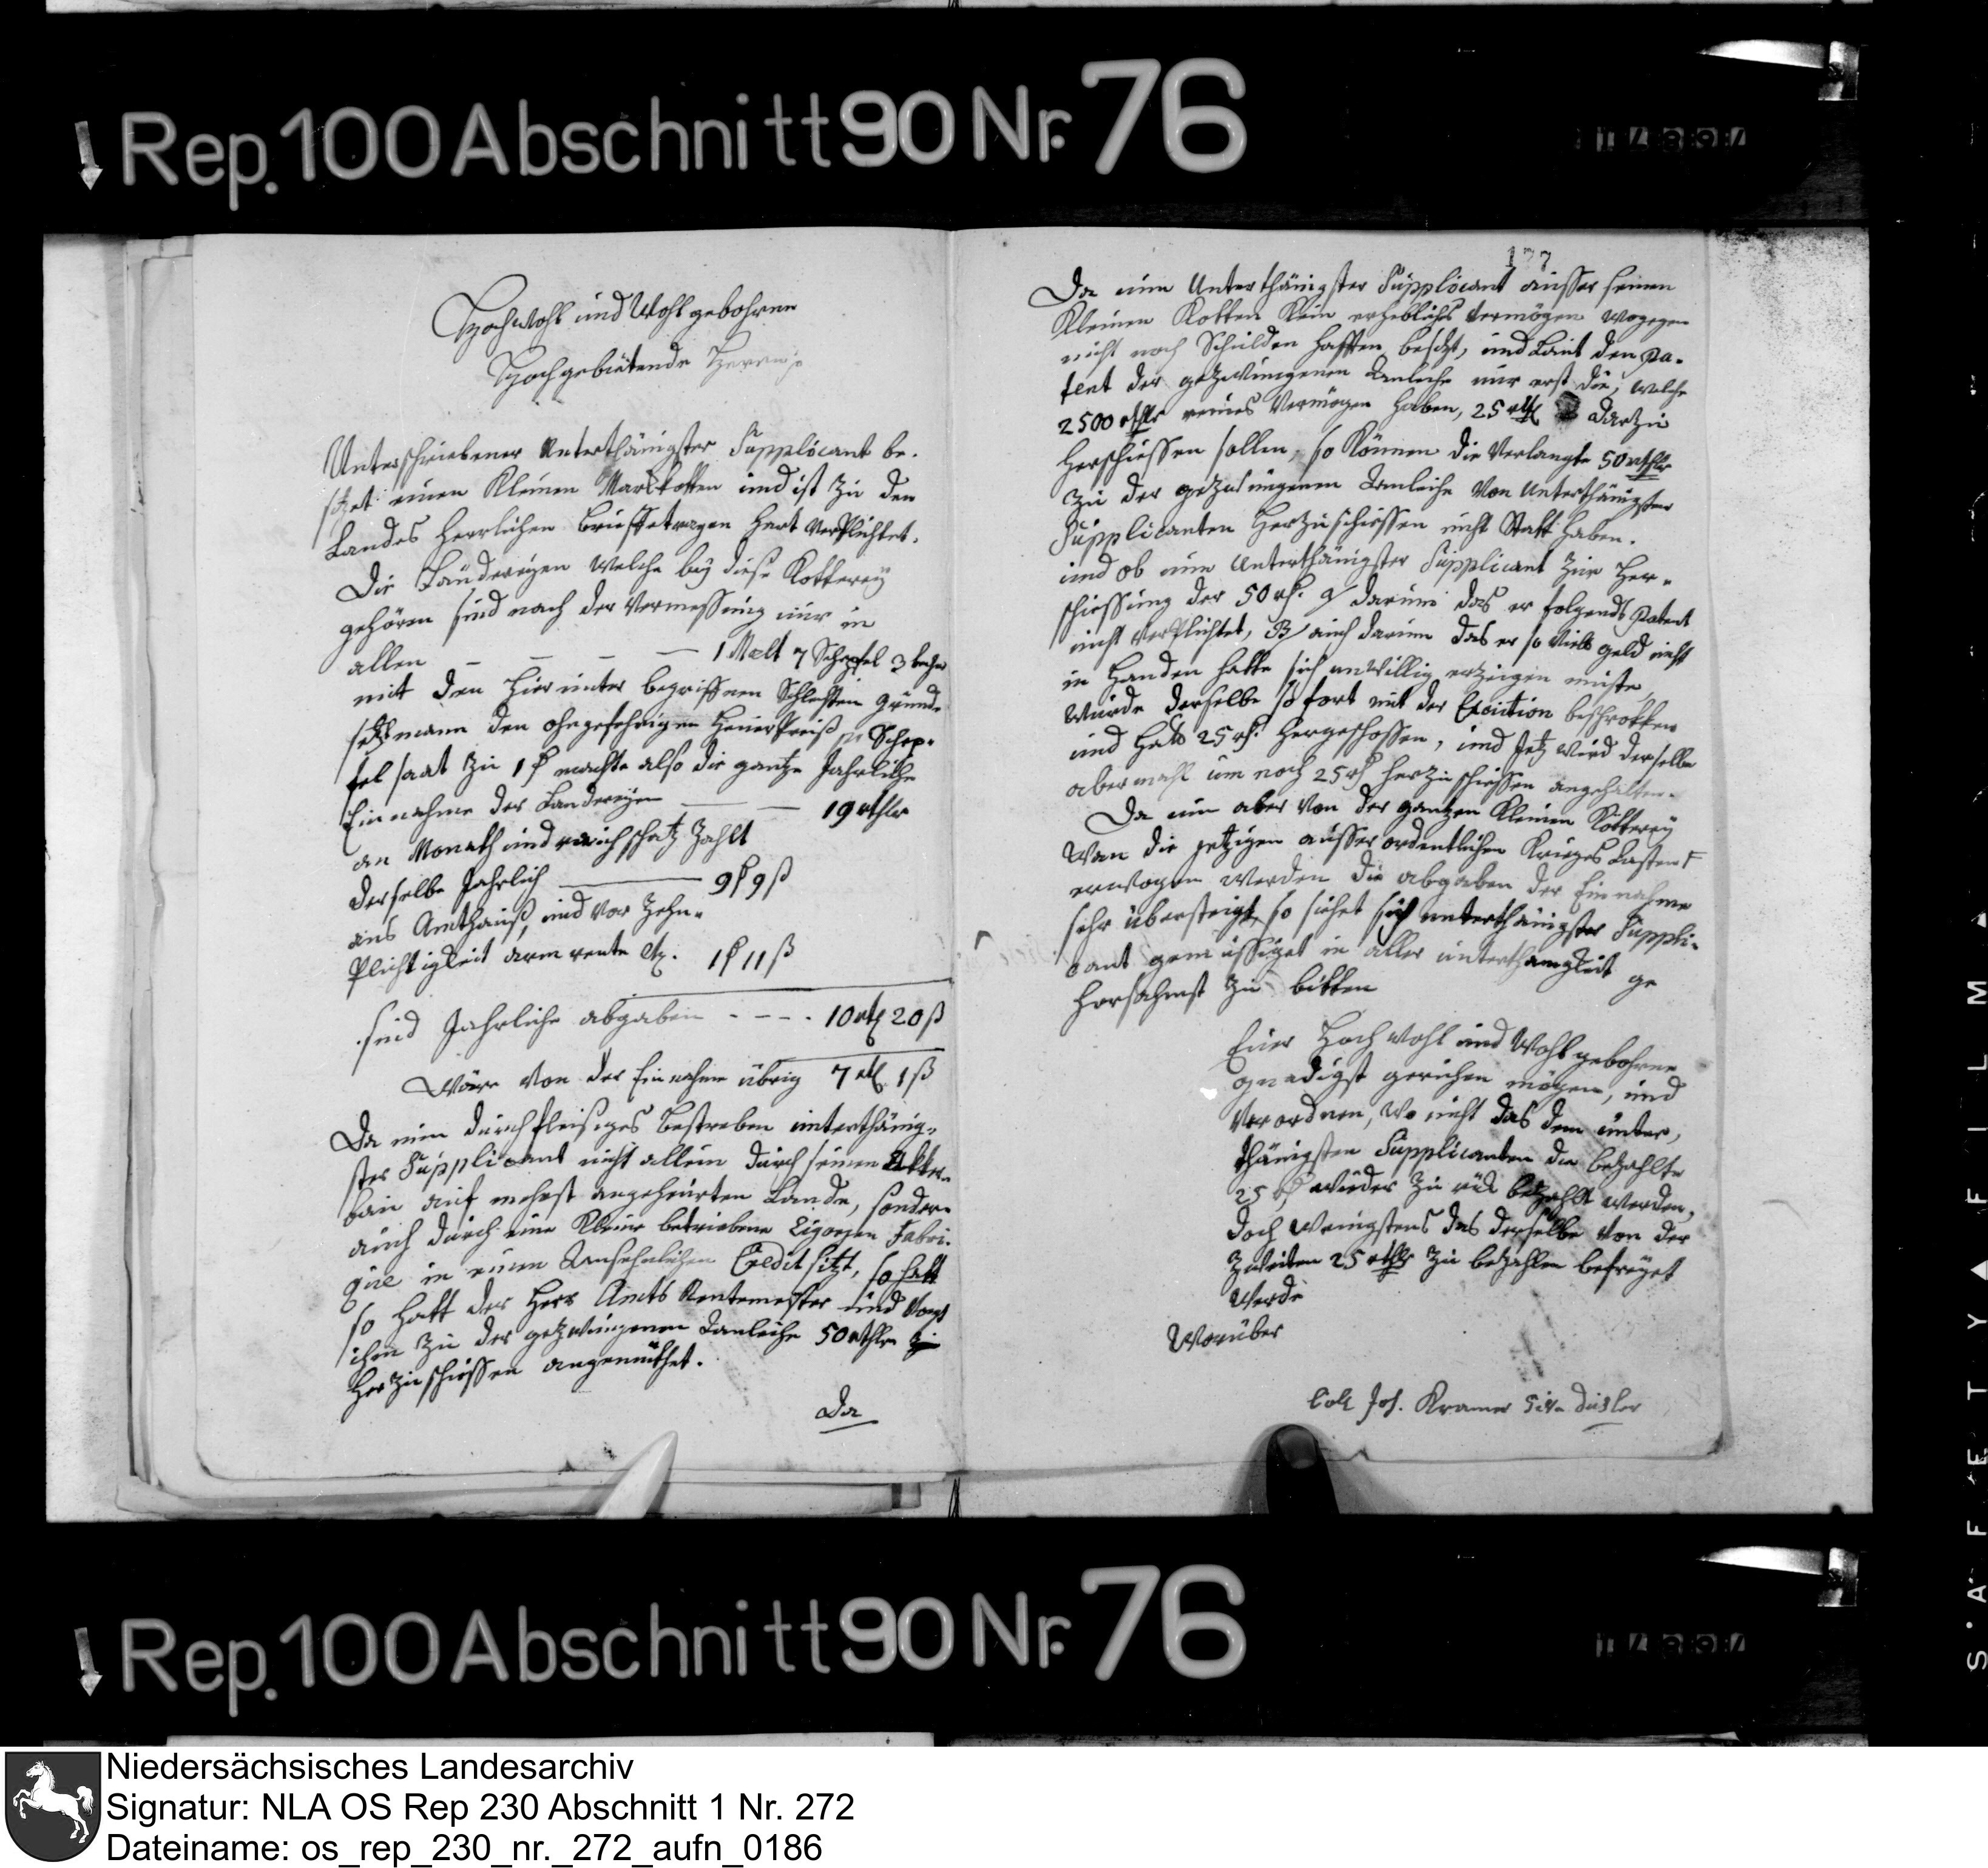 Rep. 100 Abschnitt 90 Nr. 76
Hochwohl und Wohlgebohrne
Hochgebietende Herren
Unterschriebener Unterthänigster Supplicant be-
sitzet einen Kleinen Markkotten und ist zu den
Landes Herrlichen hart verPlichtet.
Die Ländereyen welche bey diese Kotterey
gehören sind nach der Vermessung nur in
allen — — — — 1 Malt 7 Schepfel 3 becher
mit den hierunter begriffenen Schlechten Gründe
setzt mann den ohngefehrigen HeuerPreiß Schep-
fel saat zu 1 machte also die gantze Jahrliche
Einnahme der Landereyen — — 19 rthlr
an Monath und rauchschatz Zahlt
derselbe Jahrlich — 9 9 ß
ans Amthauß, und vor Zehn-
Plichtigkeit arm rente 1 11 ß
sind Jahrliche abgaben - - - - 10 rt 20 ß
Wäre von der Einnahme übrig 7 rt 1 ß
Da nun durch fleisiges Bestreben unterthänig-
ster Supplicant nicht allein durch seinen Akker-
bau auf mehrst angeheurten Lande, sondern
auch durch eine Kleine betriebene Zigorgen Fabri-
que in einem Ansehnlichen Credit sitzt, so hatt
so hatt der Herr Amts Rentemeister und Vogt
ihm zu der gezwungenen Anleihe 50 rthlr zu
Herzuschiessen angemuthet.
Da
177
Da nun Unterthänigster Supplicant ausser seinen
Kleinen Kotten Kein erhebliches Vermögen wogegen
nicht noch Schulden hafften besitzt, und Laut den Pa-
tent der gezwungenen Anleihe nur erst die, welche
2500 rthlr reines Vermögen haben, 25 rthl darzu
Herschiessen sollen, so Können die Verlangte 50 rthlr
zu der gezwungenen Anleihe von Unterthänigsten
Supplicanten Herzuschiessen nicht Statt haben.
und ob nun Unterthänigster Supplicant zur Her-
schiessung der 50 rth. a/ darum das er folgends Patent
nicht verPlichtet, B/ auch darum das er so viele geld nicht
in Handen hatte sich unwillig erzeigen muste,
wurde derselbe so fort mit der Execution beschrokken
und hatt 25 rth. hergeschossen, und Jetz wird derselbe
abermahl um noch 25 rth herzuschiessen angehalten.
Da nun aber von der gantzen Kleinen Kotterey
Wan die jetzigen ausser ordentlichen Krieges Lasten
erwogen werden die abgaben der Einnahme
sehr übersteigt, so siehet sich unterthänigster Suppli-
cant gemüssiget in aller unterthanigkeit ge
horsahmst zu bitten
Euer Hochwohl und Wohlgebohrne
gnadigst geruhen mögen, und
verordnen, wo nicht das dem unter-
thänigsten Supplicanten die bezahlte
25 rth wieder zu rük bezahlt werden,
doch wenigstens das derselbe von der
Zweiten 25 rthlr zu bezahlen befreyet
werde
Worüber
Joh. Kramer
Rep. 100 Abschnitt 90 Nr. 76
SAFETY FILM
Niedersächsisches Landesarchiv
Signatur: NLA OS Rep 230 Abschnitt 1 Nr. 272
Dateiname: os_rep_230_nr._272_aufn_0186